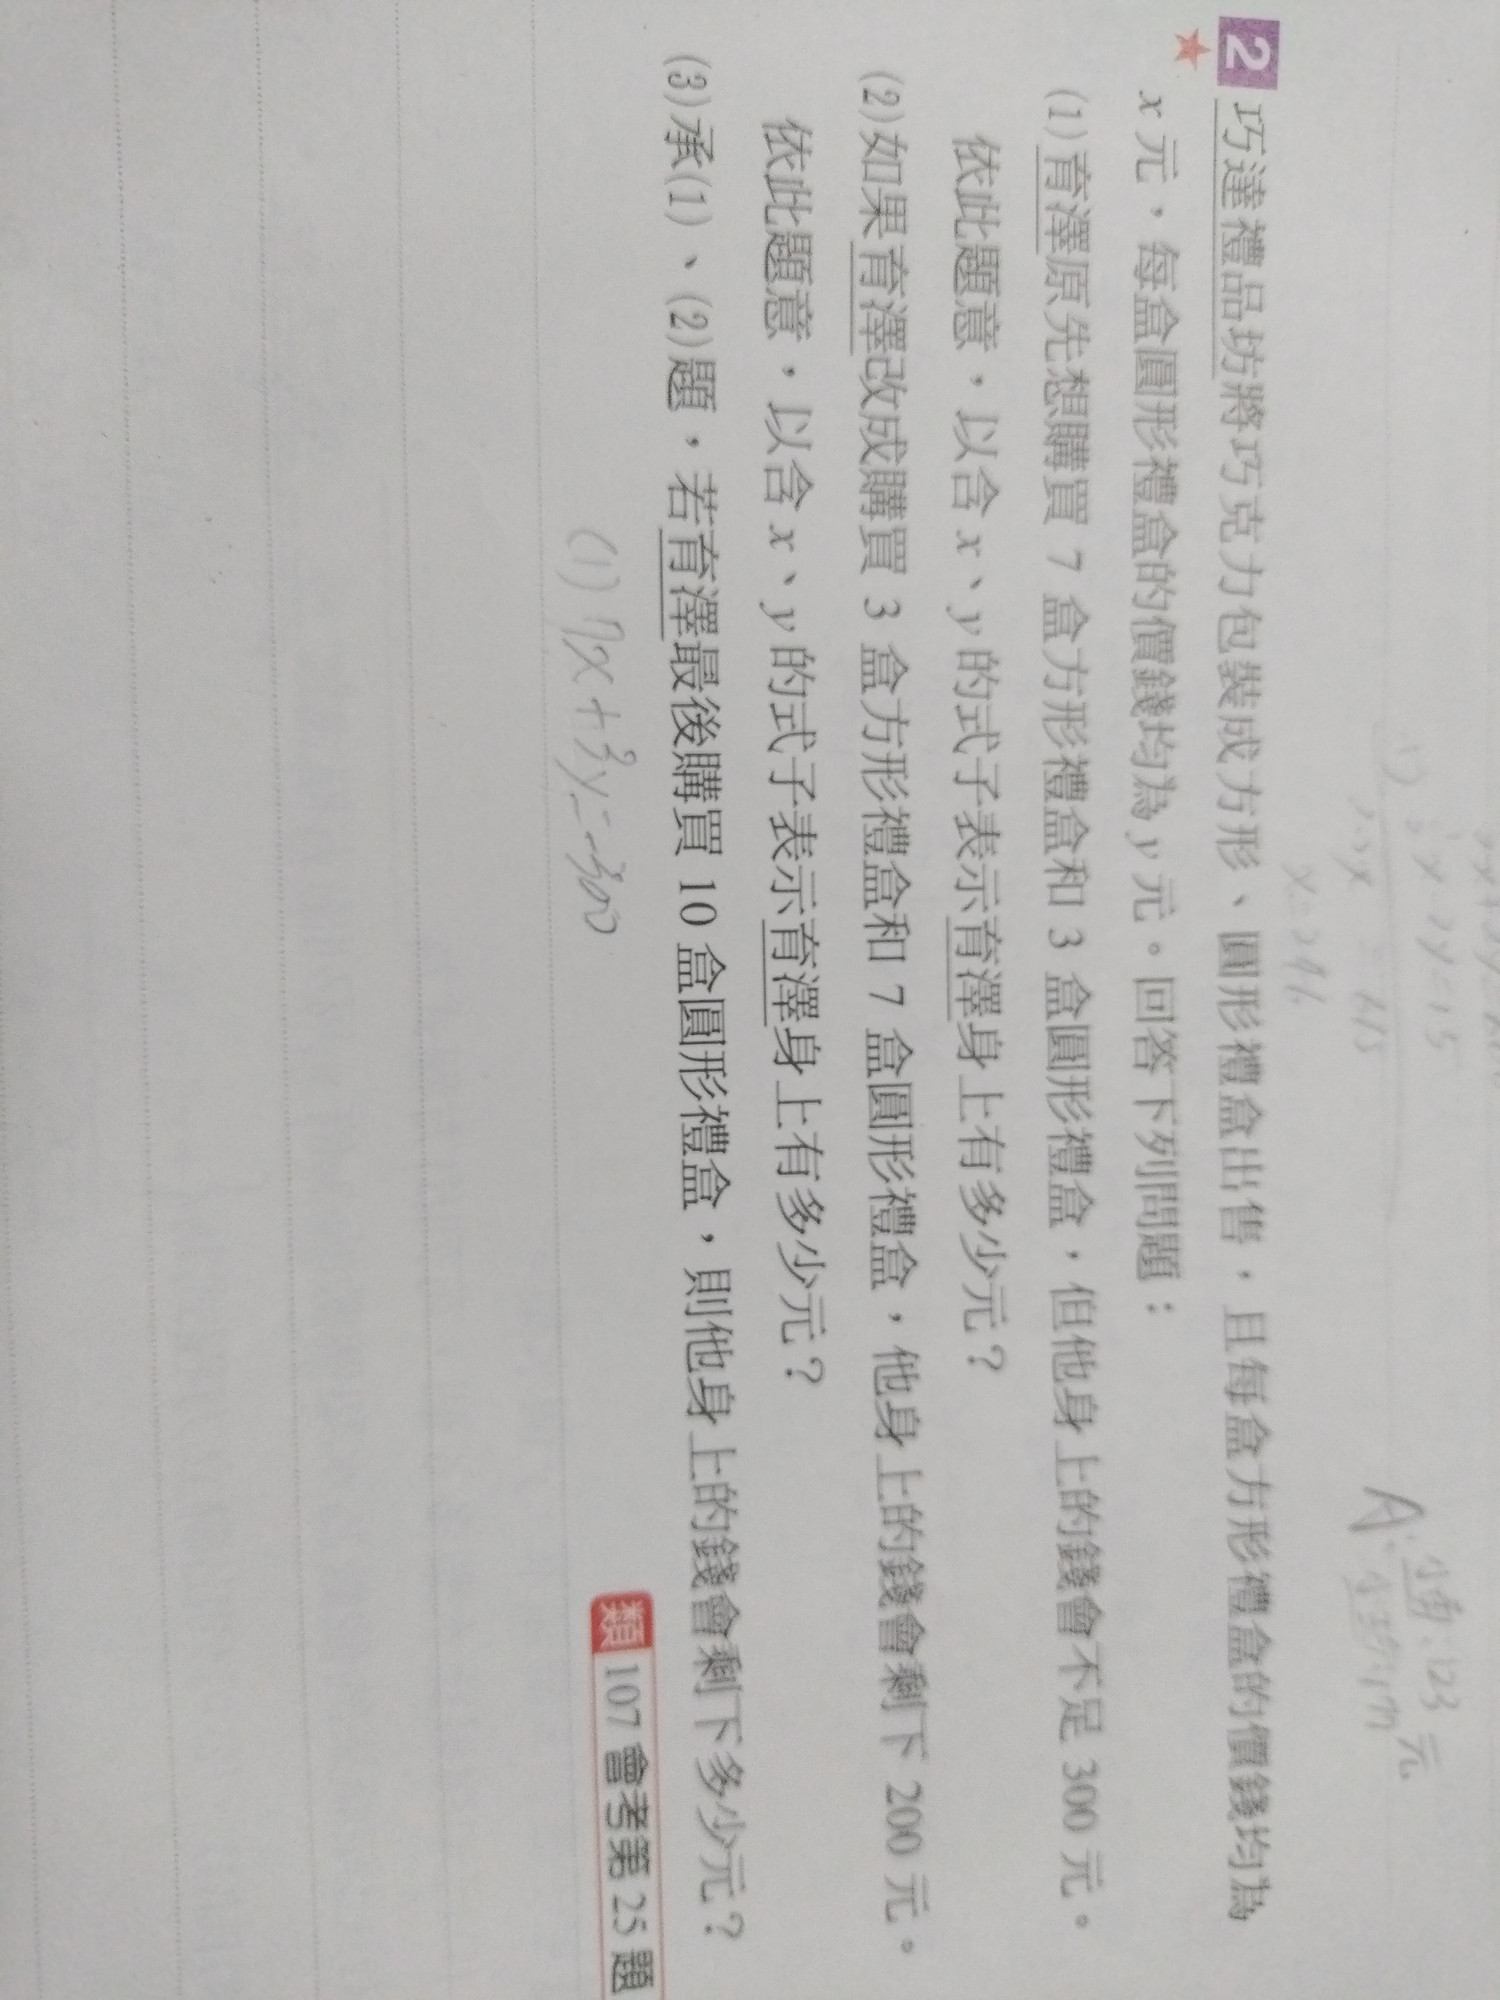 5x-2y=15
A:小勇:123元
2 巧達禮品坊將巧克力包裝成方形、圓形禮盒出售,且每盒方形禮盒的價錢均為
x元,每盒圓形禮盒的價錢均為y元。回答下列問題:
(1)育澤原先想購買 7 盒方形禮盒和 3 盒圓形禮盒,但他身上的錢會不足 300 元。
依此題意,以含x、y的式子表示育澤身上有多少元?
(2)如果育澤改成購買 3 盒方形禮盒和 7 盒圓形禮盒,他身上的錢會剩下 200 元。
依此題意,以含x、y的式子表示育澤身上有多少元?
(3)承(1)、(2)題,若育澤最後購買 10 盒圓形禮盒,則他身上的錢會剩下多少元?
類 107 會考第 25 題
(1) 7x+3y=-300